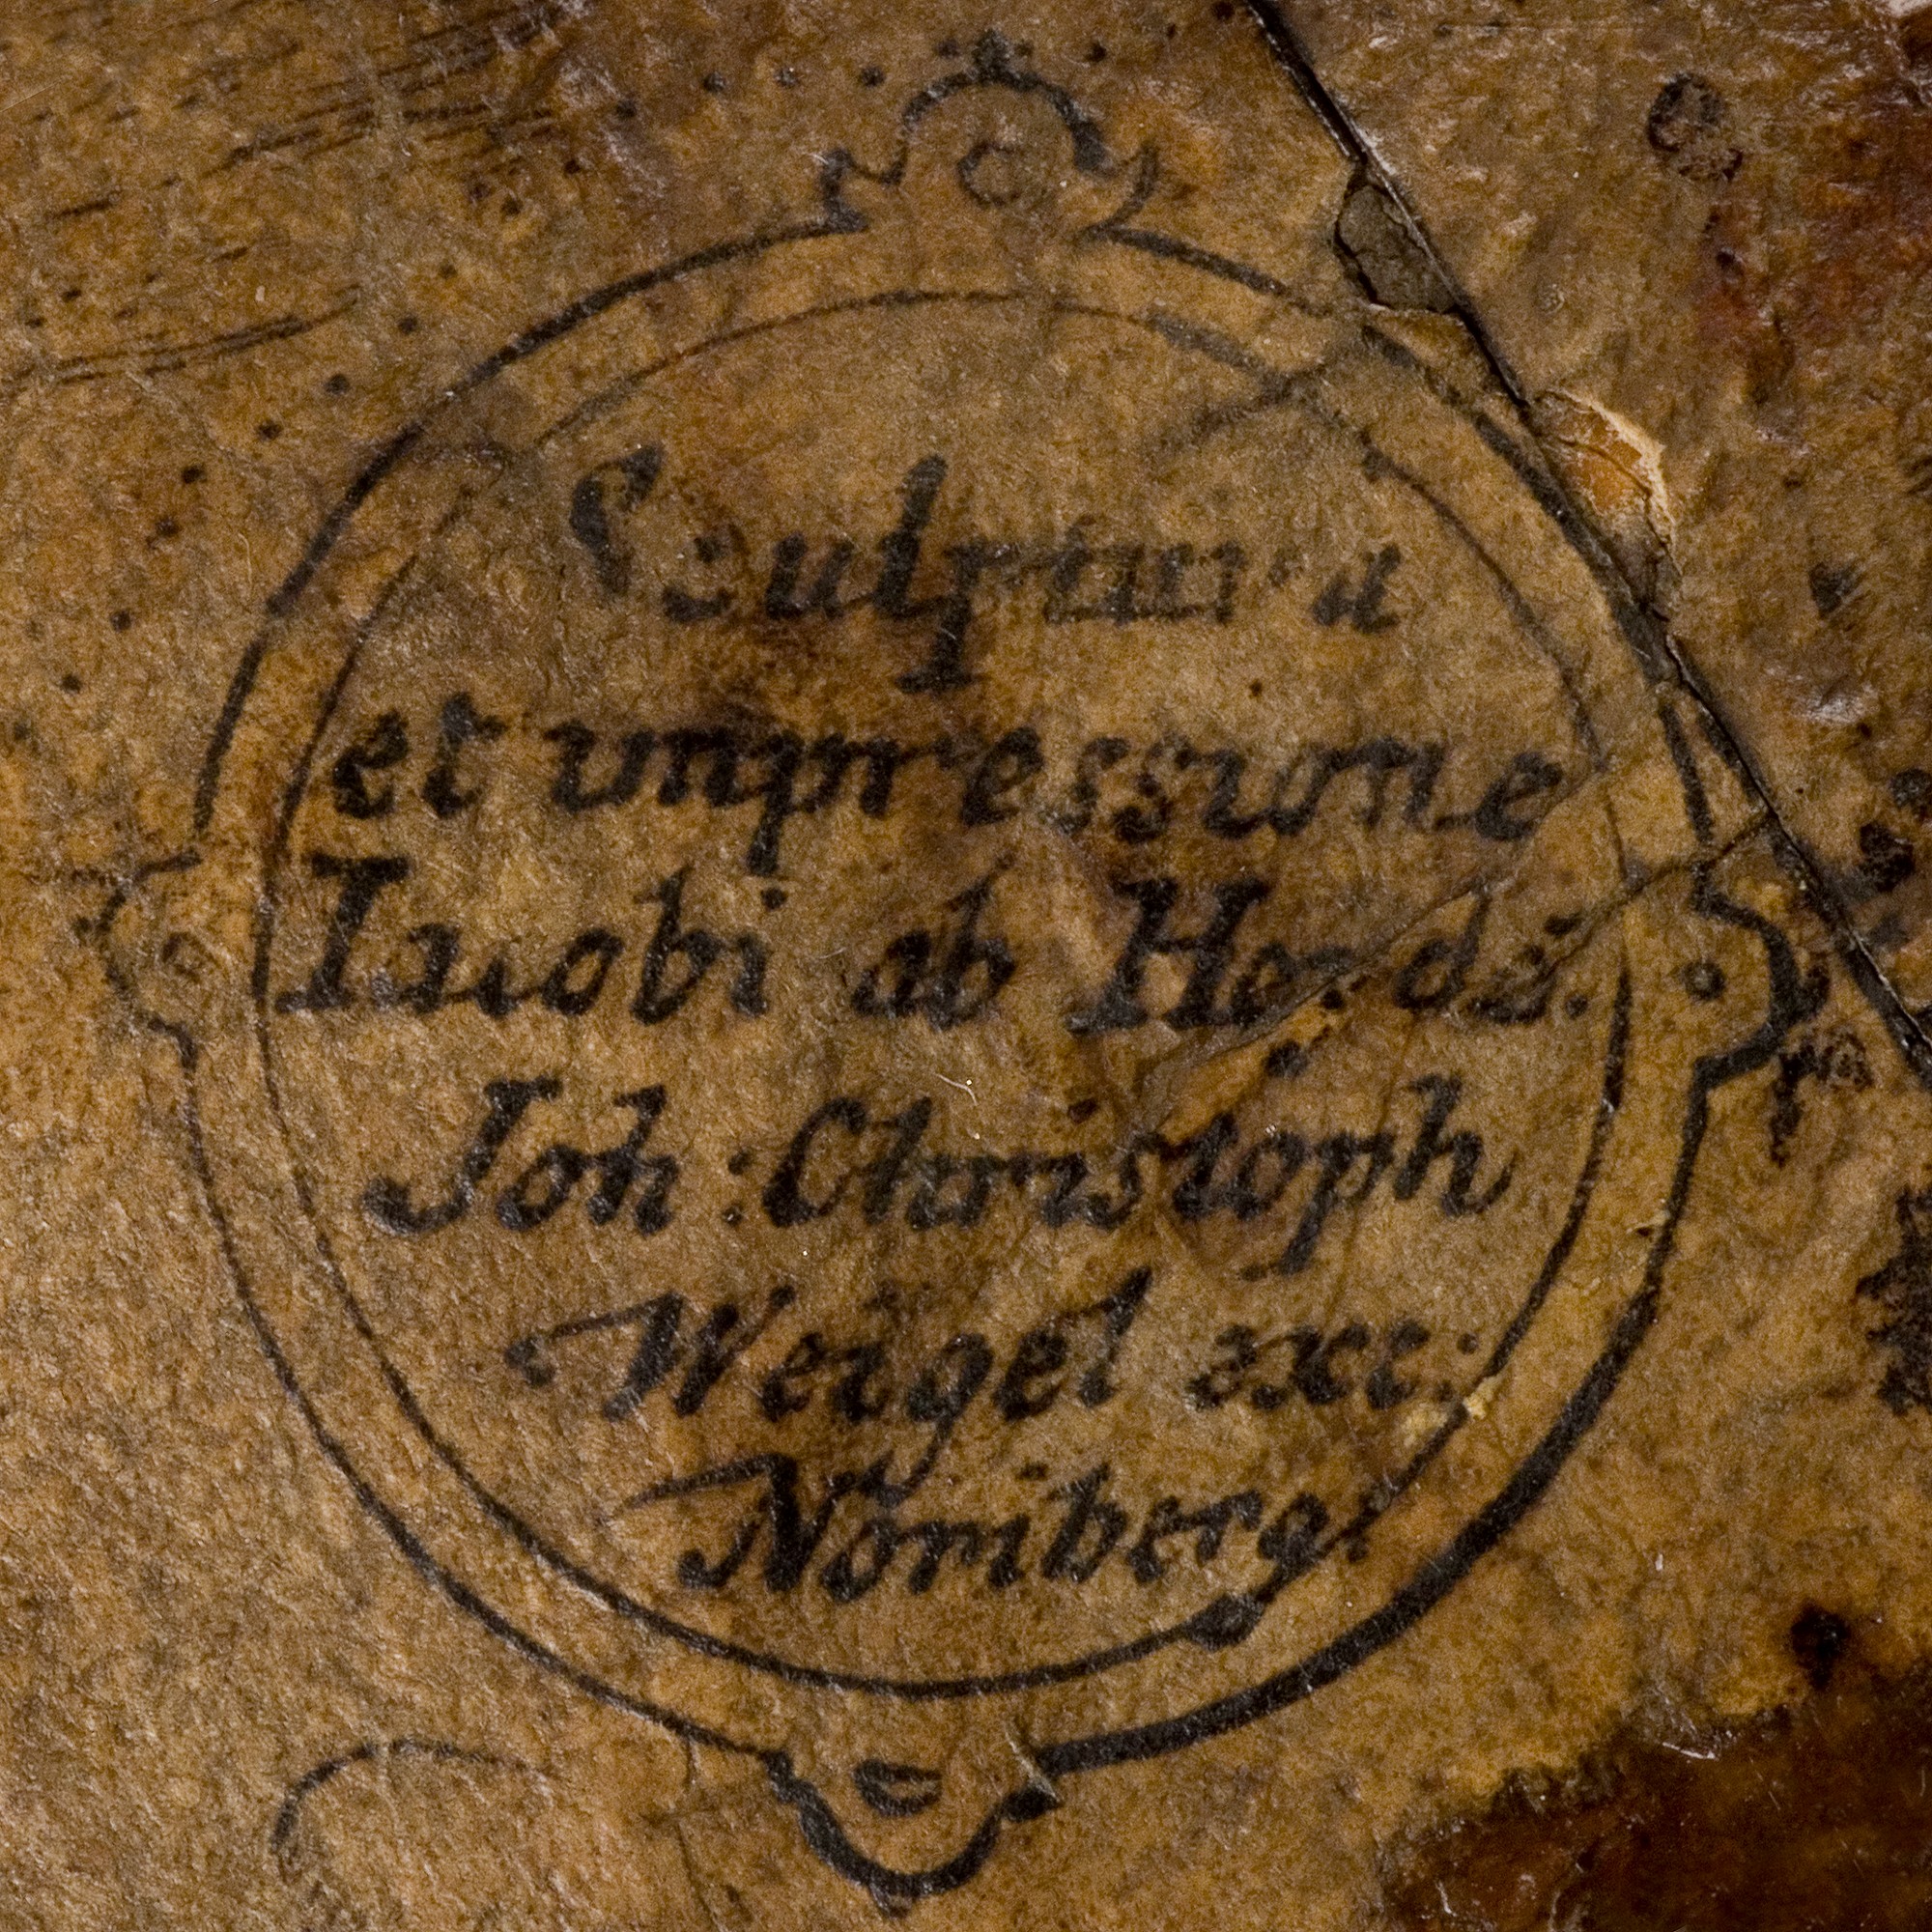 Sculptura
et impressione
Iacobi ab Heyd:
Joh: Christoph
Weigel exc:
Noriberg: